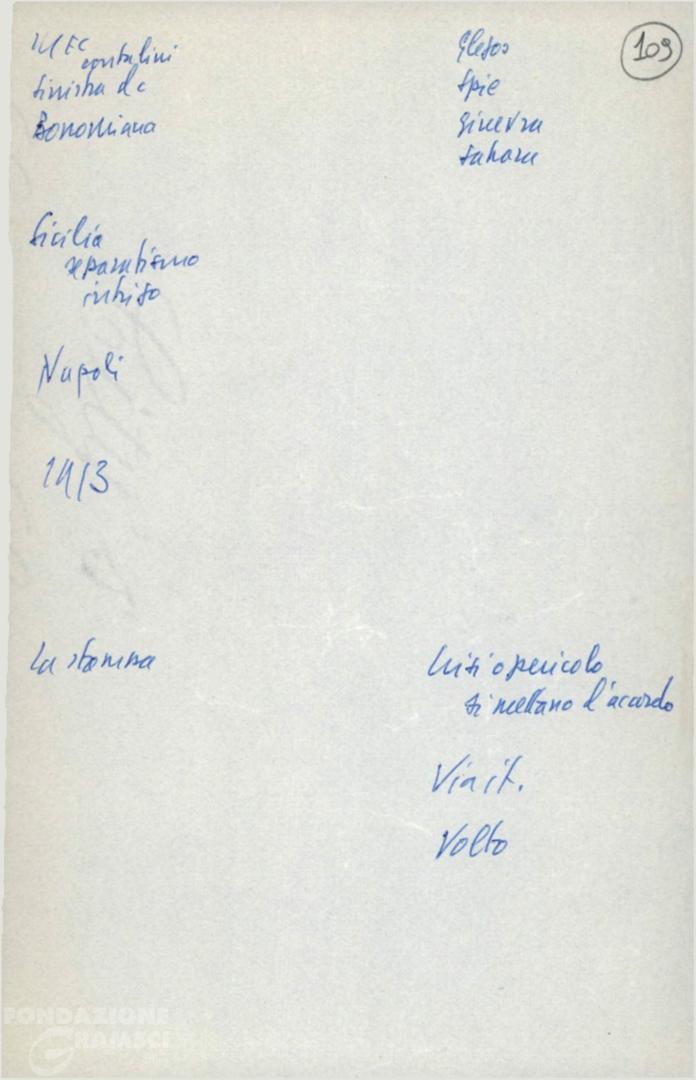 MEC
contadini
sinistra dc
Bonomiana
Sicilia
separatismo
intriso
Napoli
14/3
La stampa
Glesos
Spie
Ginevra
Sahara
109
crisi o pericolo
si mettano d'accordo
Via it.
Volto
FONDAZIONE
GRAMSCI